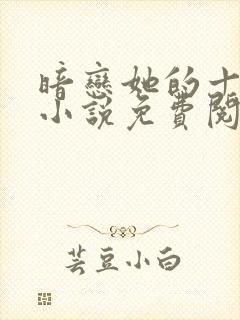 暗戀她的十
小說免費閱
芸豆小白